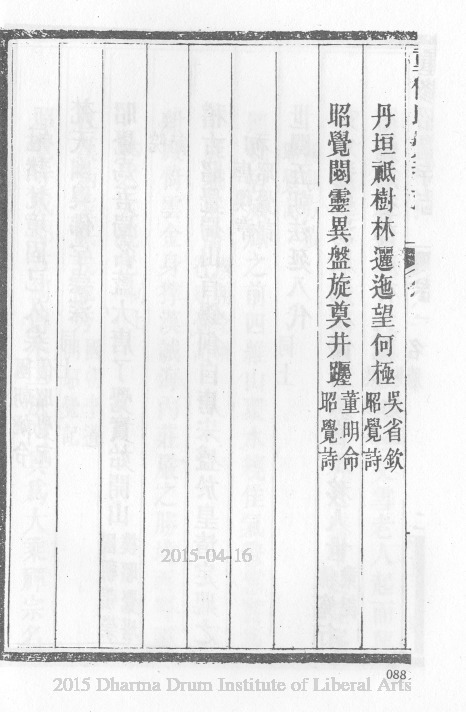 丹垣祗樹林邐迤望何極 吳省欽昭覺詩
昭覺閟靈異盤旋奠井躔 董明命昭覺詩
2015-04-16
088
2015 Dharma Drum Institute of Liberal Arts